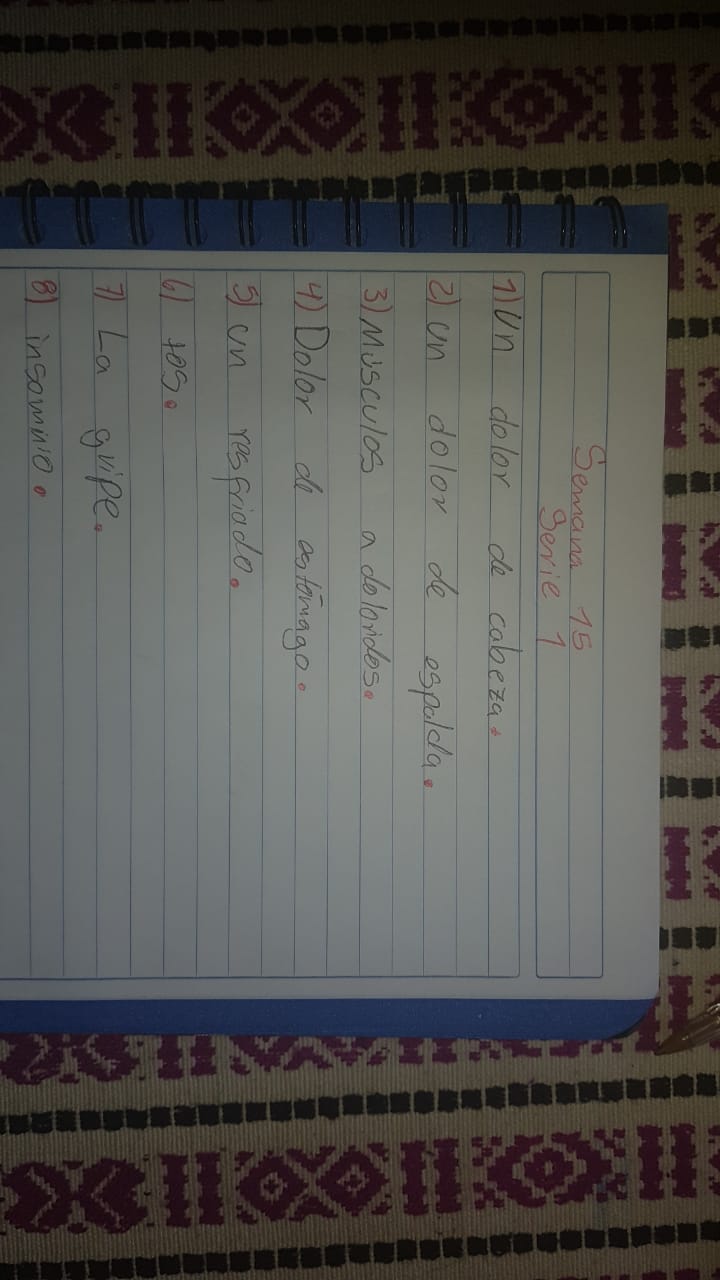 Semana 15
Serie 1
1) Un dolor de cabeza.
2) Un dolor de espalda.
3) Músculos a doloridos.
4) Dolor de estómago.
5) un resfriado.
6) tos.
7) La gripe.
8) insomnio.